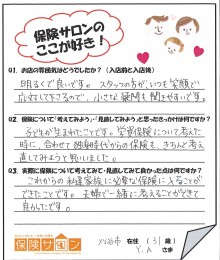 保険サロンの
ここが好き！
Q1. お店の雰囲気はどうでしたか？（入店前と入店後）
明るくて良いです。スタッフの方がいつも笑顔で
応対して下さるので、小さな疑問も聞きやすいです。
Q2. 保険について「考えてみよう」・「見直してみよう」と思ったきっかけは何ですか？
子どもが生まれたことです。学資保険について考えた
時に、合わせて独身時代からの保険も、きちんと考え
直してみようと思いました。
Q3. 実際に保険について考えてみて・見直してみて良かった点は何ですか？
これからの私達家族に必要な保険に入ることが
できたことです。夫婦で一緒に考えることができて
良かったです。
保険サロン
刈谷市 在住 （31 歳）
Y.A さま